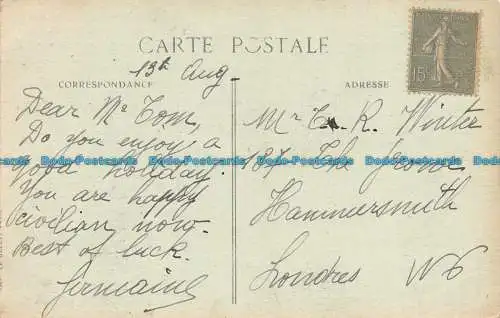 CARTE POSTALE
CORRESPONDANCE
ADRESSE
15c
13th Aug-
Dear Mr Tom,
Do you enjoy a
good holiday.
You are happy
civilian now-
Best of luck.
Germaine
Mr T. R. Winter
187 The Grove
Hammersmith
Londres W6
Dodo-Postcards Dodo-Postcards Dodo-Postcards Dodo-Postcards Dodo-Postcards Dodo-Postcards